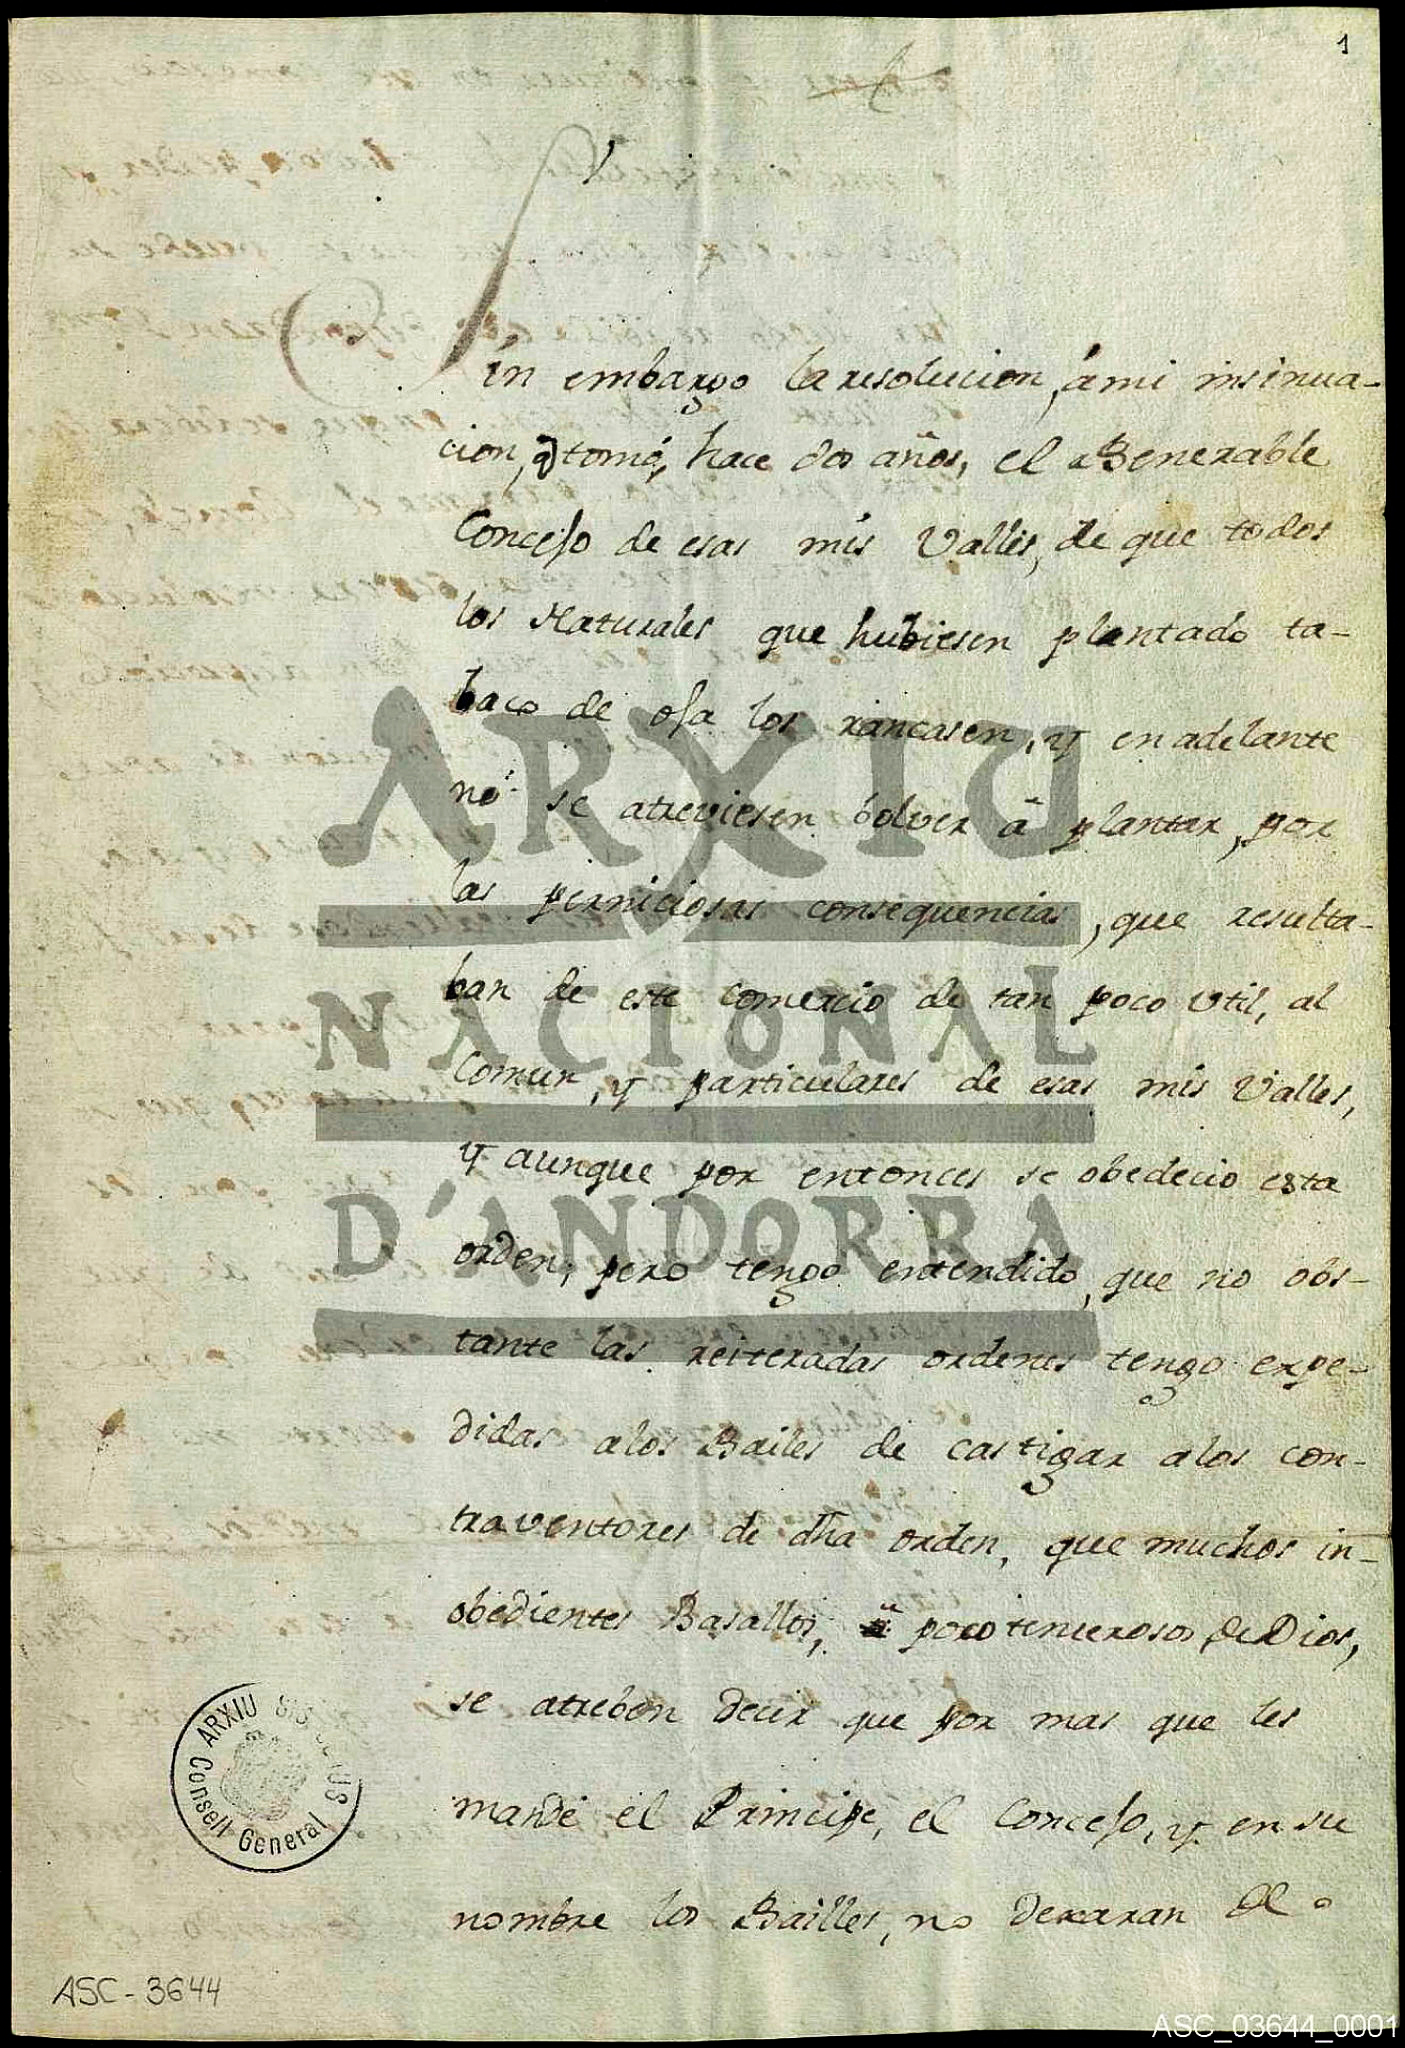 1
Sin embargo la resolucion, á mi insinua-
cion, q̃ tomó, hace dos años, el Benerable
Concejo de esas mis Valles, de que todos
los Naturales que hubiesen plantado ta-
baco de oja los rancasen, y en adelante
no se atreviesen bolver â plantar, por
las perniciosas consequencias, que resulta-
ban de este comercio de tan poco util, al
Comun, y particulares de esas mis Valles,
y aunque por entonces se obedecio esta
orden; pero tengo entendido, que no obs-
tante las reiteradas ordenes tengo expe-
didas a los Bailes de castigar a los con-
traventores de dha orden, que muchos in-
obedientes Basallos, poco temerosos de Dios,
se atreben decir que por mas que les
mande el Principe, el Concejo, y en su
nombre los Bailles, no dexaran de
ARXIU
NACIONAL
D'ANDORRA
ARXIU
Consell General
ASC-3644
ASC_03644_0001